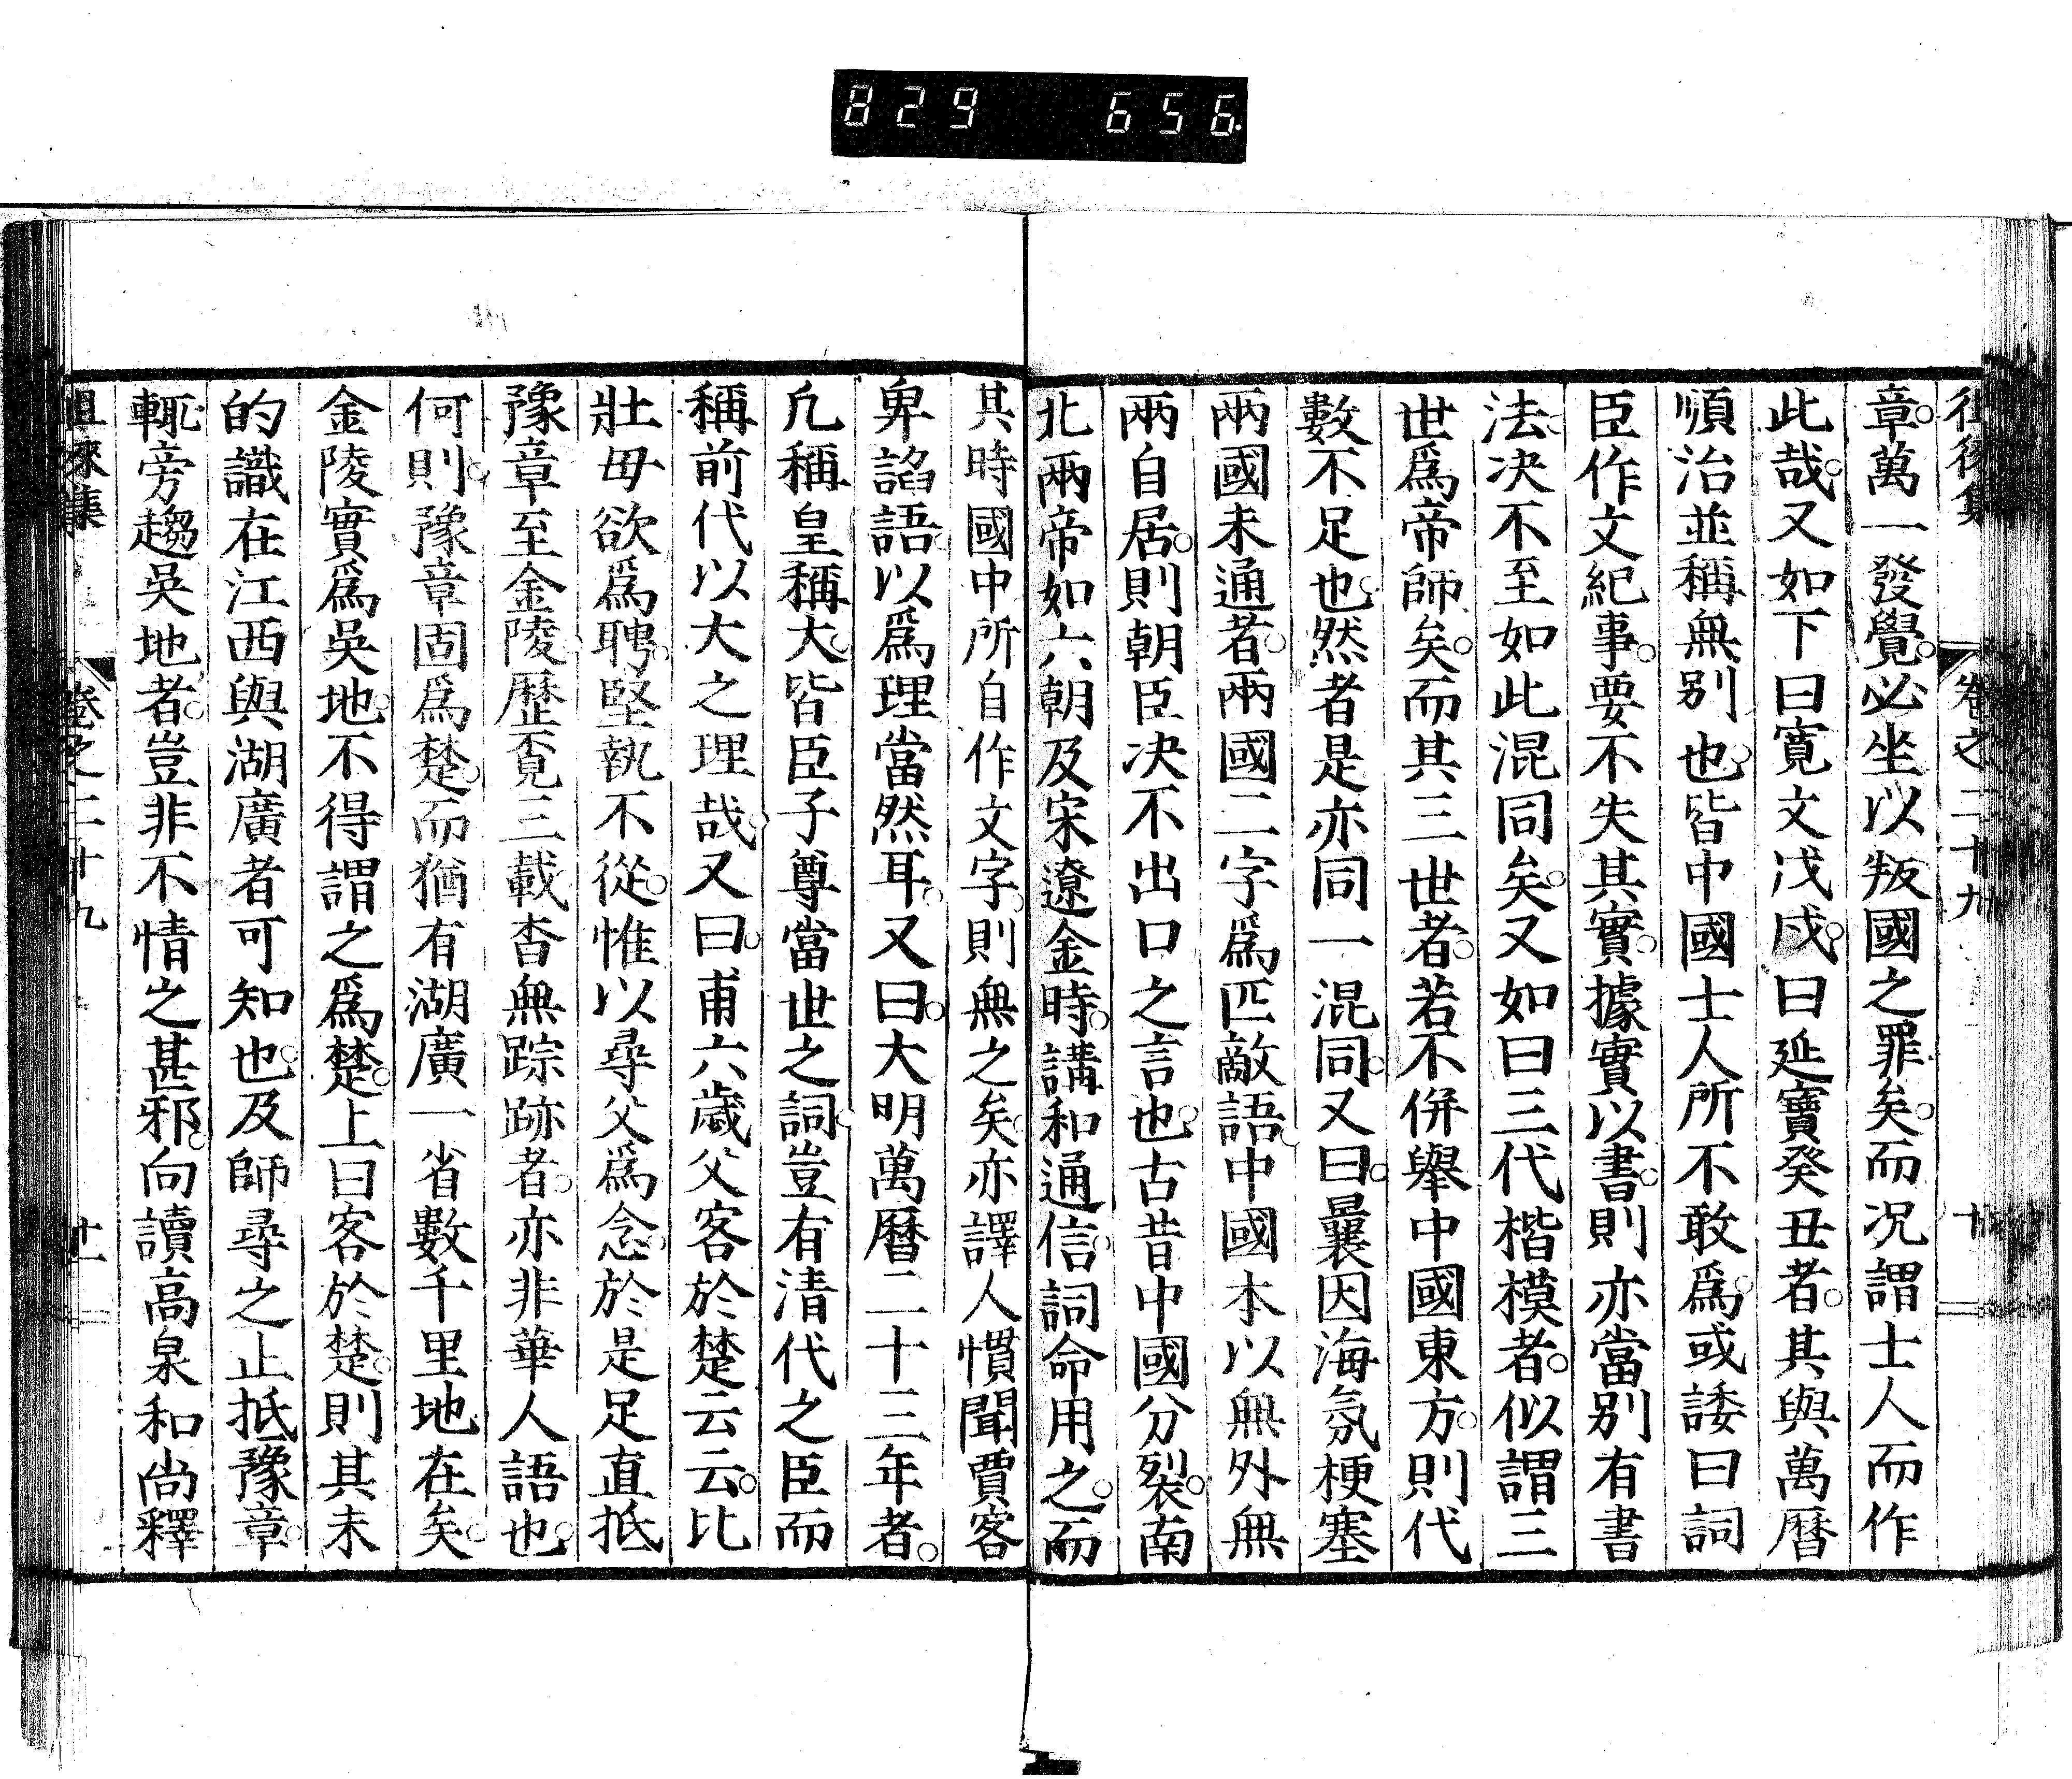 829 656
徂徠集 卷之二十九 十
章。萬一發覺。必坐以叛國之罪矣。而况謂士人而作
此哉。又如下曰寛文戊戌。曰延寶癸丑者。其與萬曆
順治並稱無別也。皆中國士人所不敢爲。或諉曰詞
臣作文紀事。要不失其實。據實以書。則亦當別有書
法。决不至如此混同矣。又如曰三代楷模者。似謂三
世爲帝師矣。而其三世者。若不併舉中國東方。則代
數不足也。然者是亦同一混同。又曰。曩因海氛梗塞
兩國未通者。兩國二字爲匹敵語。中國本以無外無
兩自居。則朝臣决不出口之言也。古昔中國分裂。南
北兩帝如六朝及宋遼金時。講和通信。詞命用之。而
其時國中所自作文字。則無之矣。亦譯人慣聞賈客
卑諂語。以爲理當然耳。又曰。大明萬曆二十三年者。
凢稱皇稱大。皆臣子尊當世之詞。豈有清代之臣而
稱前代以大之理哉。又曰。甫六歲父客於楚云云。比
壯毋欲爲聘。堅執不從。惟以尋父爲念。於是足直抵
豫章至金陵。歷覔三載杳無踪跡者。亦非華人語也。
何則。豫章固爲楚。而猶有湖廣一省數千里地在矣。
金陵實爲吳地。不得謂之爲楚。上曰客於楚。則其未
的識在江西與湖廣者可知也。及師尋之止抵豫章。
輒旁趨吳地者。豈非不情之甚邪。向讀高泉和尚釋
徂徠集 卷之二十九 十一